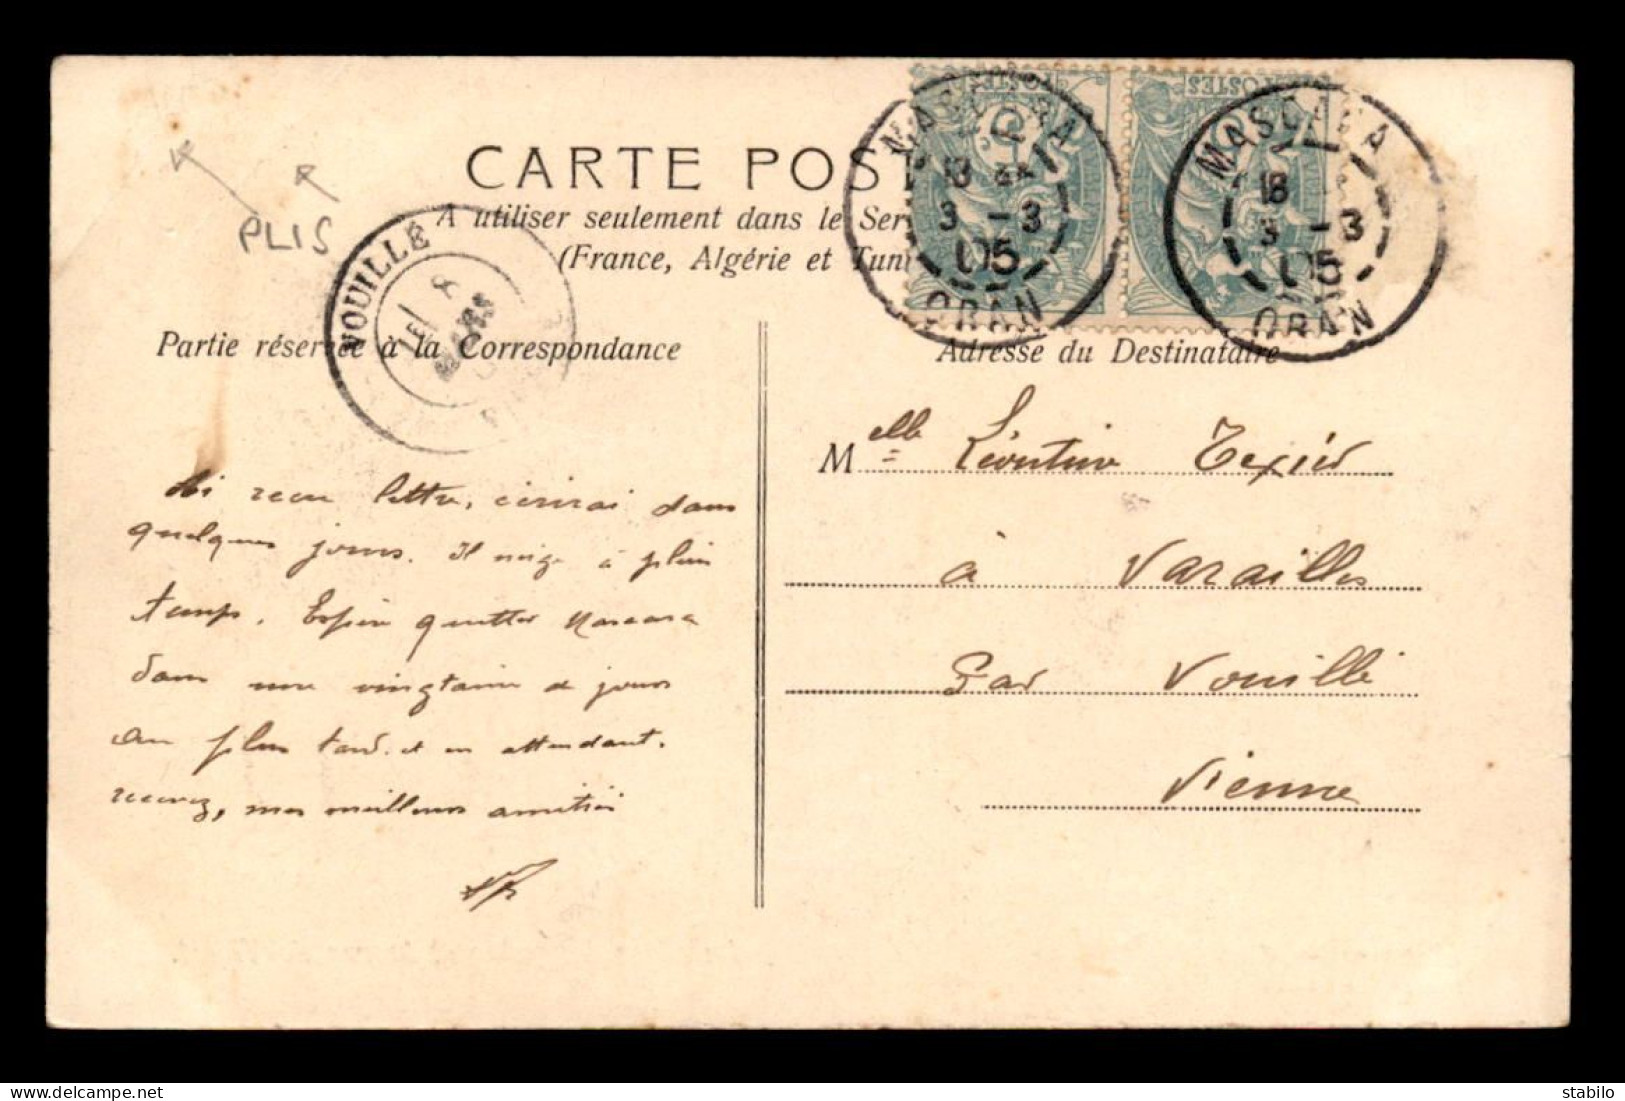 CARTE POST
A utiliser seulement dans le Ser
(France, Algérie et Tuni
PLIS
VOUILLÉ
8
MARS
MASCARA
3 -3
05
ORAN
POSTES
5
MASCARA
18
3 -3
05
ORAN
POSTES
Partie réservée à la Correspondance
Adresse du Destinataire
Melle Léontine Texier
à Varailles
Par Vouillé
Vienne
Ai reçu lettre, écrirai dans
quelques jours. Il neige à plein
temps. Espère quitter Mascara
dans une vingtaine de jours
au plus tard. et en attendant.
recevez, mes meilleurs amitiés
stabilo